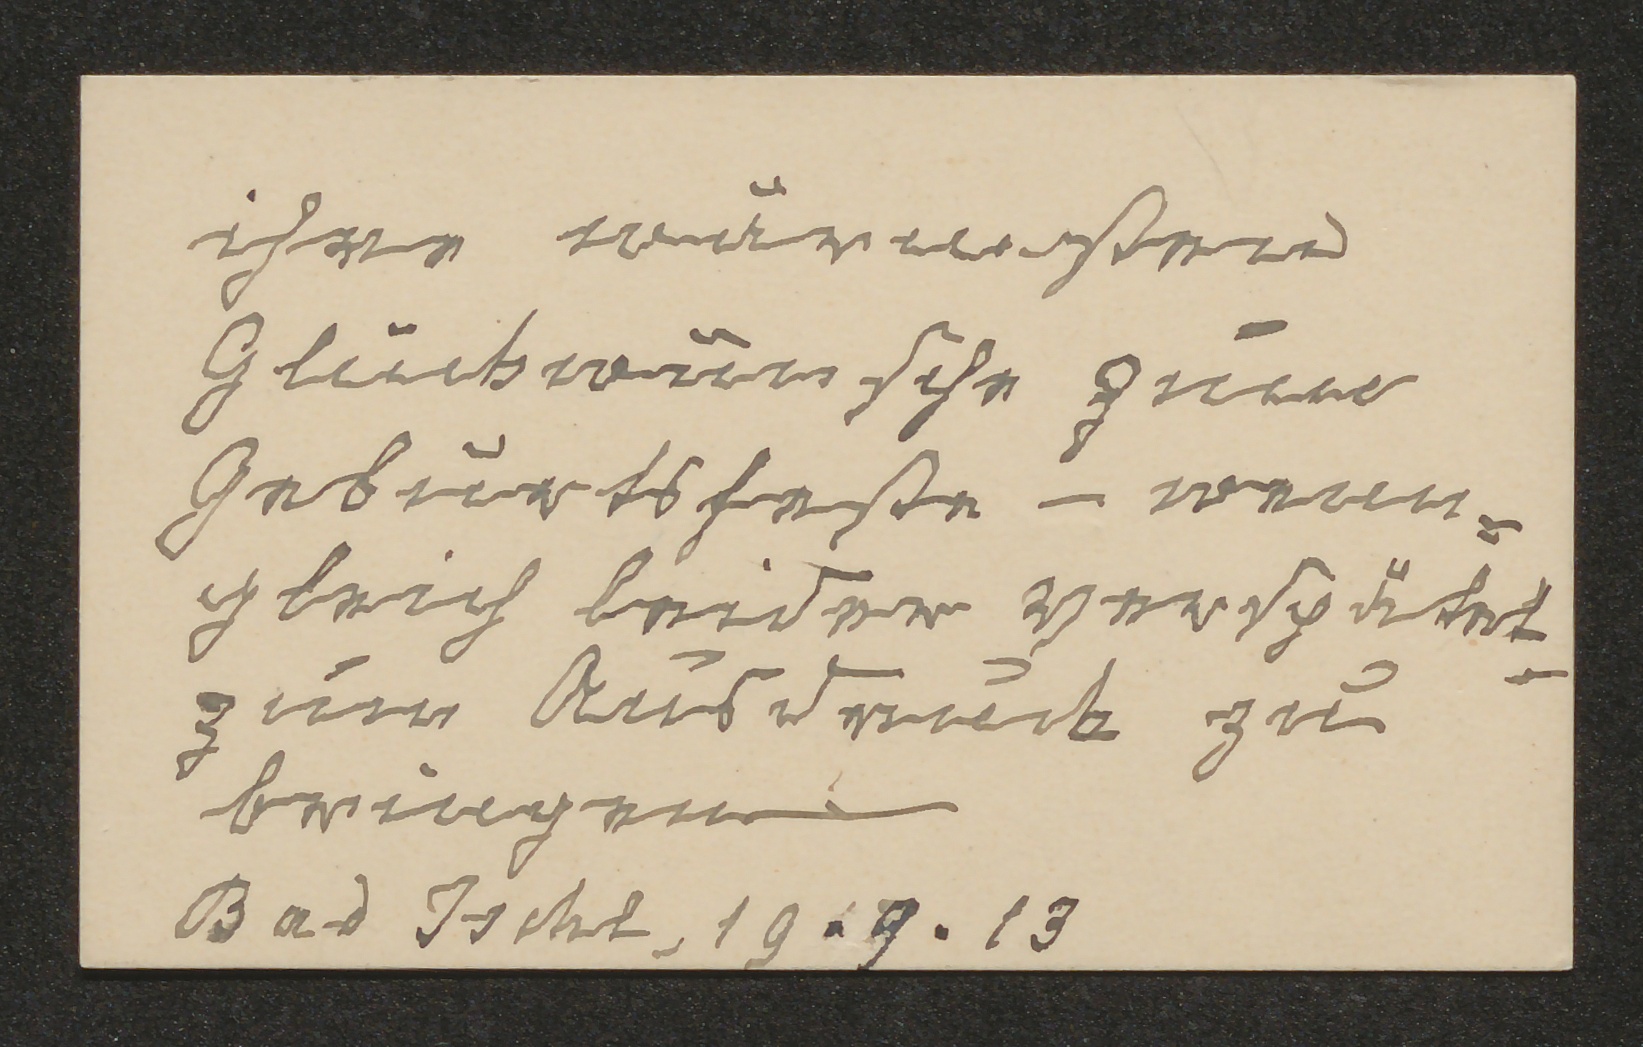 ihre wärmsten
Glückwünsche zum
Geburtsfeste – wenn-
gleich leider verspätet –
zum Ausdruck zu
bringen
Bad Ischl, 19.9.13